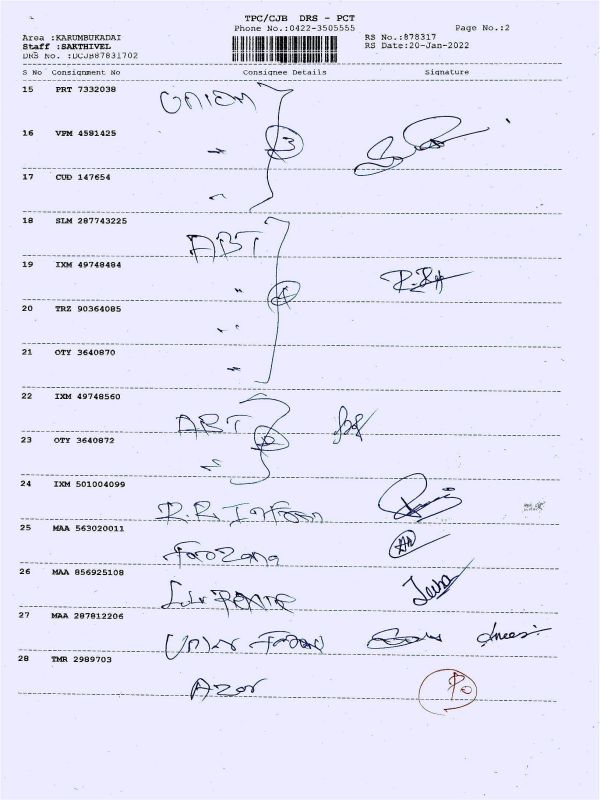 TPC/CJB DRS - PCT
Phone No.:0422-3505555 Page No.:2
Area :KARUMBUKADAI RS No.:878317
Staff :SAKTHIVEL RS Date:20-Jan-2022
DRS No. :DCJB87831702
S No Consignment No Consignee Details Signature
15 PRT 7332038
UNION
16 VPM 4581425
3
17 CUD 147654
18 SLM 287743225
ABT
19 IXM 49748484
4
20 TRZ 90364085
21 OTY 3640870
22 IXM 49748560
ABT
23 OTY 3640872
24 IXM 501004099
R.R.
25 MAA 563020011
26 MAA 856925108
27 MAA 287812206
28 TMR 2989703
Azar